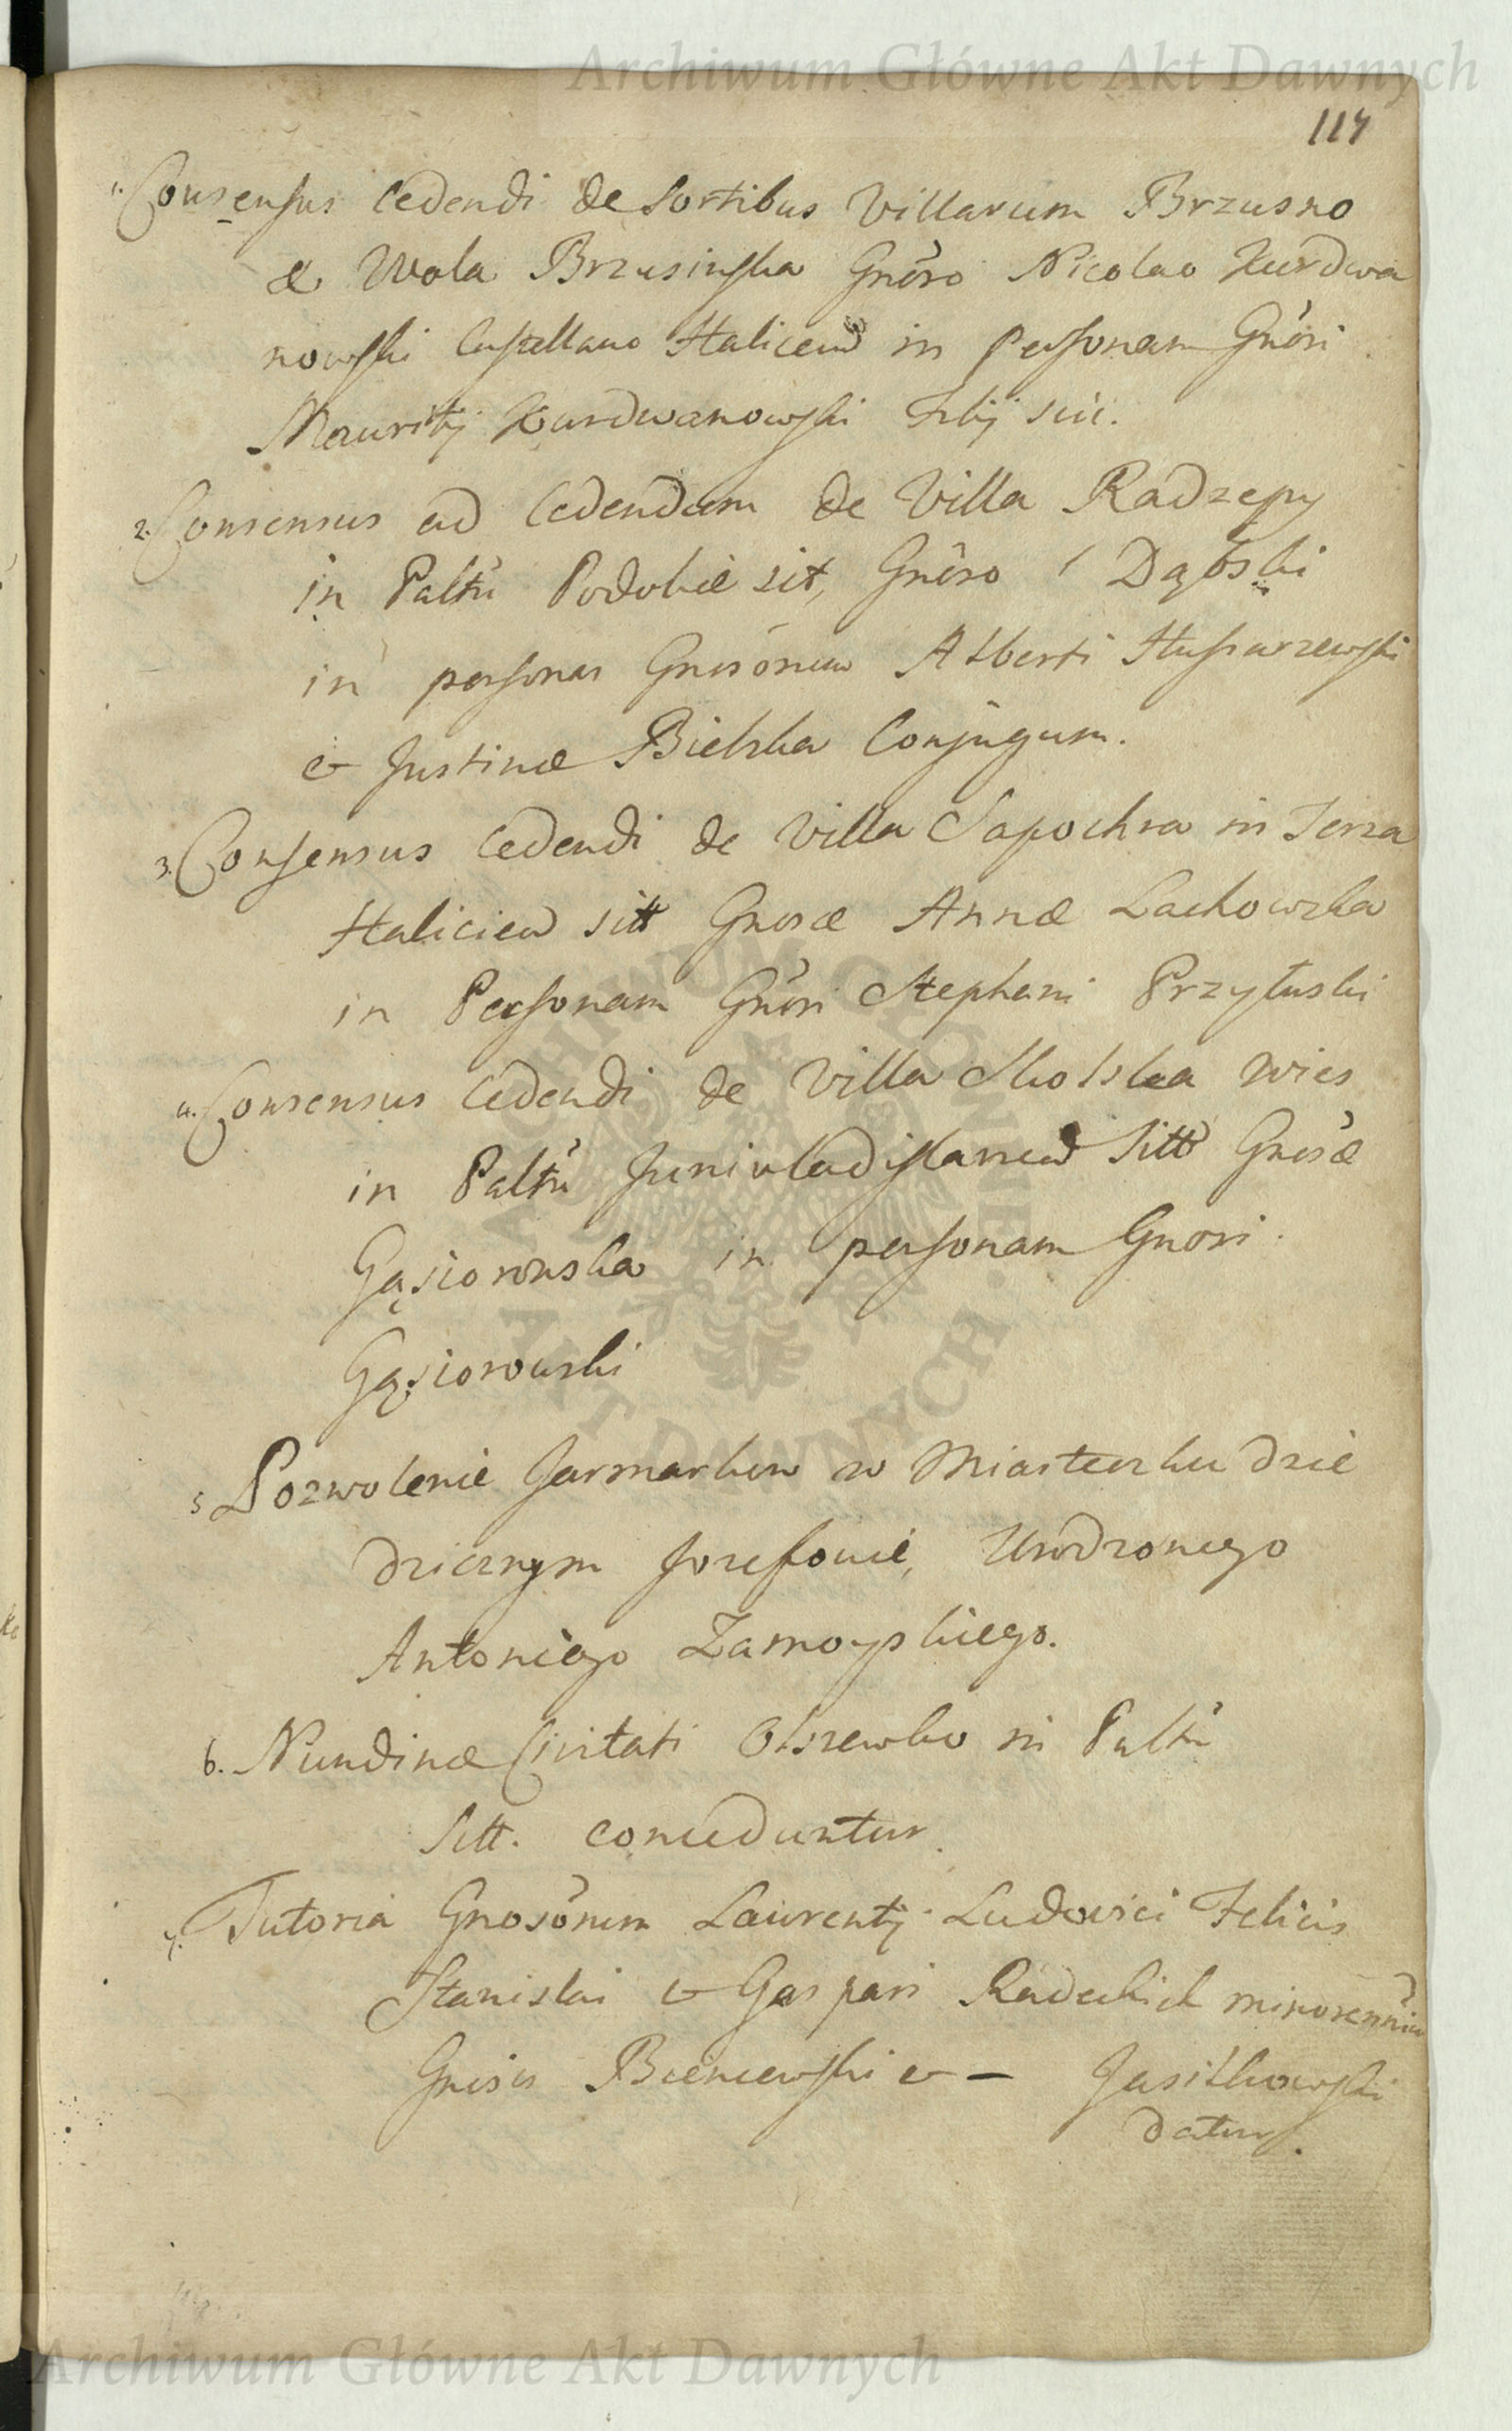 Archiwum Główne Akt Dawnych
117
1. Consensus cedendi de Sortibus Villarum Brzusno
& Wola Brzusinska Gnôso Nicolao Kurdwa
nowski Castellano Halicen in Personam Gnôsi
Mauritij Kurdwanowski Filij sui.
2. Consensus ad cedendum de Villa Radzepy
in Paltû Podoliæ sit, Gnôso Dąbski
in personas Gnosôrum Alberti Hussarzewski
& Justinæ Bielska Conjugum.
3. Consensus cedendi de Villa Sapochra in Terra
Halicien sitt Gnosæ Annæ Lachowska
in Personam Gnôsi Stephani Przyłuski
4. Consensus cedendi de Villa Skolska wies
in Paltû Juniuladislavien Sitt Gnosæ
Gąsiorowska in personam Gnosi
Gąsiorowski
5 Pozwolenie Jarmarkow w Miasteczku dzie
dzicznym Jozefowie, Urodzonego
Antoniego Zamoyskiego.
6. Nundinæ Civitati Olszewko in Paltû
Sitt. conceduntur.
7. Tutoria Gnosôrum Laurentij Ludovici Felicis
Stanislai & Gaspari Radeckich minorennium
Gnosis Bieniewski & – Jasilkowski
datur.
ARCHIWUM GŁÓWNE AKT DAWNYCH
Archiwum Główne Akt Dawnych